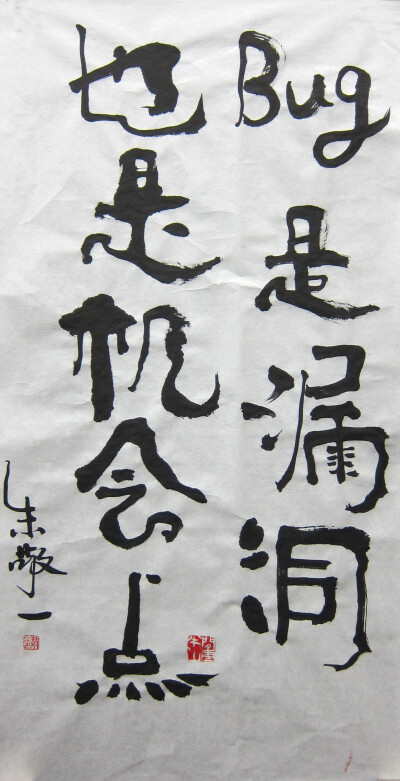 Bug是漏洞
也是机会点
朱敬一